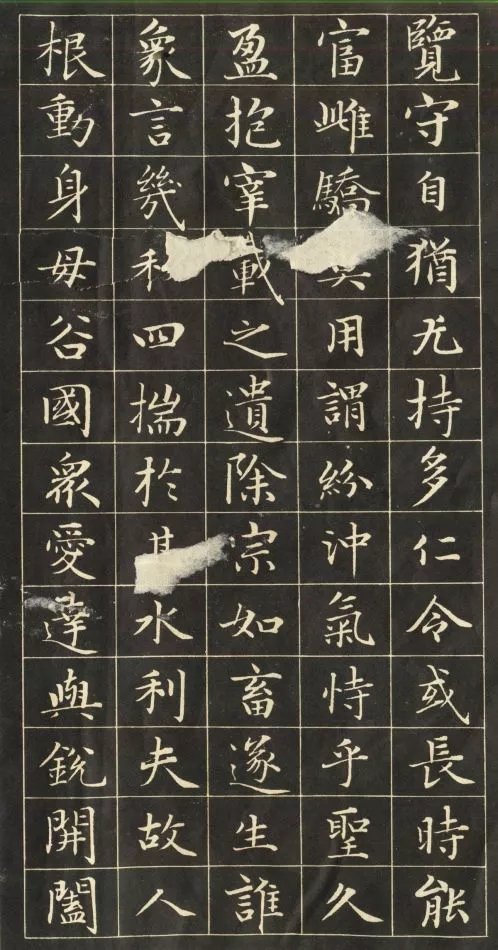 覽守自猶无持多仁令或長時能
富雌驕其用謂紛沖氣恃乎聖久
盈抱宰載之遺除宗如畜遂生誰
象言幾私四揣於甚水利夫故人
根動身毋谷國衆愛達與銳開闔